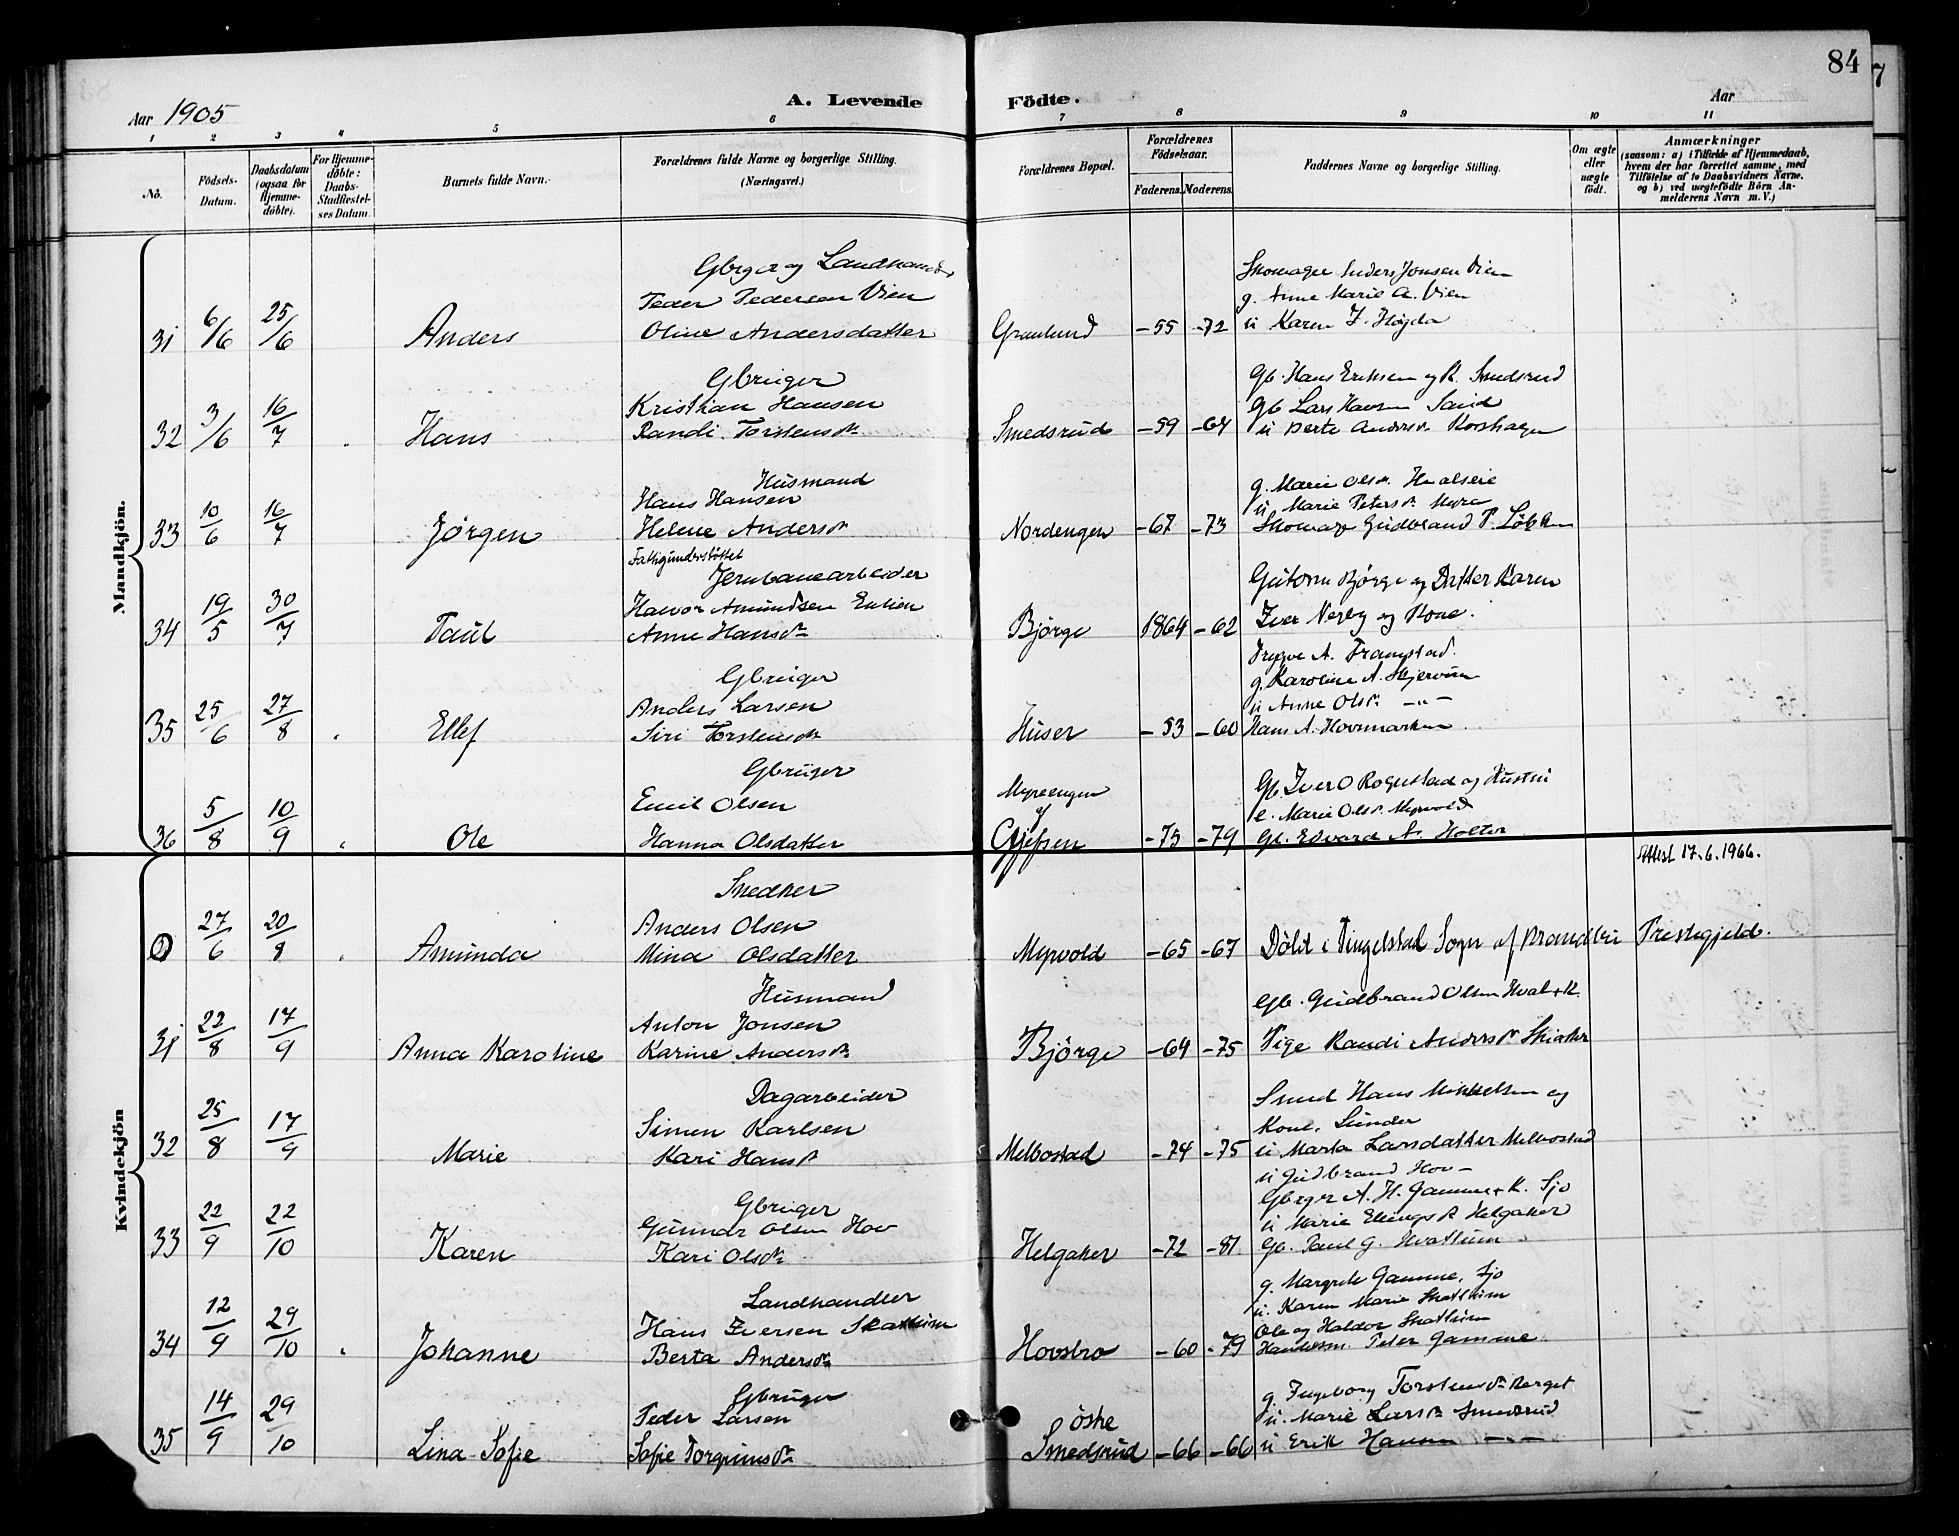 84
Aar 1905
A. Levende Födte.
Aar
1 2 3 4 5 6 7 8 9 10 11
No.
Födsels-Datum.
Daabsdatum (ogsaa for Hjemmedöbte).
For Hjemmedøbte: Daabs-Stadfæstelses Datum.
Barnets fulde Navn.
Forældrenes fulde Navne og borgerlige Stilling. (Næringsvei.)
Forældrenes Bopæl.
Forældrenes Födselsaar.
Faderens. Moderens.
Faddernes Navne og borgerlige Stilling.
Om ægte eller uægte födt.
Anmærkninger (saasom: a) i Tilfælde af Hjemmedaab, hvem der har forrettet samme, med Tilföielse af to Daabsvidners Navne, og b) ved uægtefödte Börn Anmelderens Navn m. V.)
Mandkjön.
Gbrger og Landhand
Peder Pedersen Vien
31 6/6 25/6 Anders Oline Andersdatter Granlund -55 -72
Skomager Anders Jonsen Vien
g. Anne Marie A. Vien
u Karen I. Høgda
Gbruger
Kristian Hansen
32 3/6 16/7 Hans Randi Torstensdr. Smedsrud -59 -64
Gb. Hans Eriksen og K. Smedsrud
Gb Lars Hansen Sand
u Berte Andersdr. Korshagen
Husmand
Hans Hansen
33 10/6 16/7 Jørgen Helene Andersdr. Nordengen -67 -73
Fattigunderstøttet
g. Marie Olsdr.
u Marie Petersdr. Myra
Skomager Gudbrand P.
Jernbanearbeider
Halvor Amundsen
34 19/5 30/7 Paul Anne Hansdr. Bjørge 1864 -62
Guttorm Bjørge og Datter Karen
Iver Nerby og Kone.
Trygve A. Framstad.
Gbruger
Anders Larsen
35 25/6 27/8 Ellef Siri Torstensdr. Huser -53 -60
g. Karoline A. Skjervum
u Anne Olsdr. -"-
Hans A. Hovsmarken
Gbruger
Emil Olsen
36 5/8 10/9 Ole Hanna Olsdatter Myreengen af Gjefsen -75 -79
Gb. Iver O Rognstad og Hustru
e. Marie Olsdr. Myrvold
Gb. Edvard A. Holter
Kvindekjön
Attest 17.6.1966.
Snedker
Anders Olsen
27/6 20/8 Amunda Mina Olsdatter Myrvold -65 -67 Döbt i Tingelstad Sogn af Brandbu Prestegjeld.
Husmand
Anton Jonsen
31 22/8 17/9 Anna Karoline Karine Andersdr. Bjørge -64 -75
Gb. Gudbrand Olsen Hval + K.
Pige Randi Andersdr. Skiaker
Dagarbeider
Simen Karlsen
32 25/8 17/9 Marie Kari Hansdr. Melbostad -74 -75
Smed Hans Mikkelsen og
Kone, Lunder
u Marta Larsdatter Melbostad
u Gudbrand Hov -
Gbruger
Gunnar Olsen Hov
33 22/9 22/10 Karen Kari Olsdr. Helgaker -72 -81
Gbrger A. H. Gamme + K. Sjo
u Marie Ellingsdr. Helgaker
Gb. Paul G. Hvattum
Landhandler
Hans Iversen Skattum
34 12/9 29/10 Johanne Berta Andersdr. Hovsbro -60 -79
g. Margrete Gamme, Sjo
u. Karen Marie Skattum
Ole og Haldor Skattum
Handelsm. Peter Gamme
Gbruger
Peder Larsen
35 14/9 29/10 Lina Sofie Sofie Torgrimsdr. østre Smedsrud -66 -66
g. Ingeborg Torstensdr. Berget
u. Marie Larsdr. Smedsrud
u Erik Hansen -"-